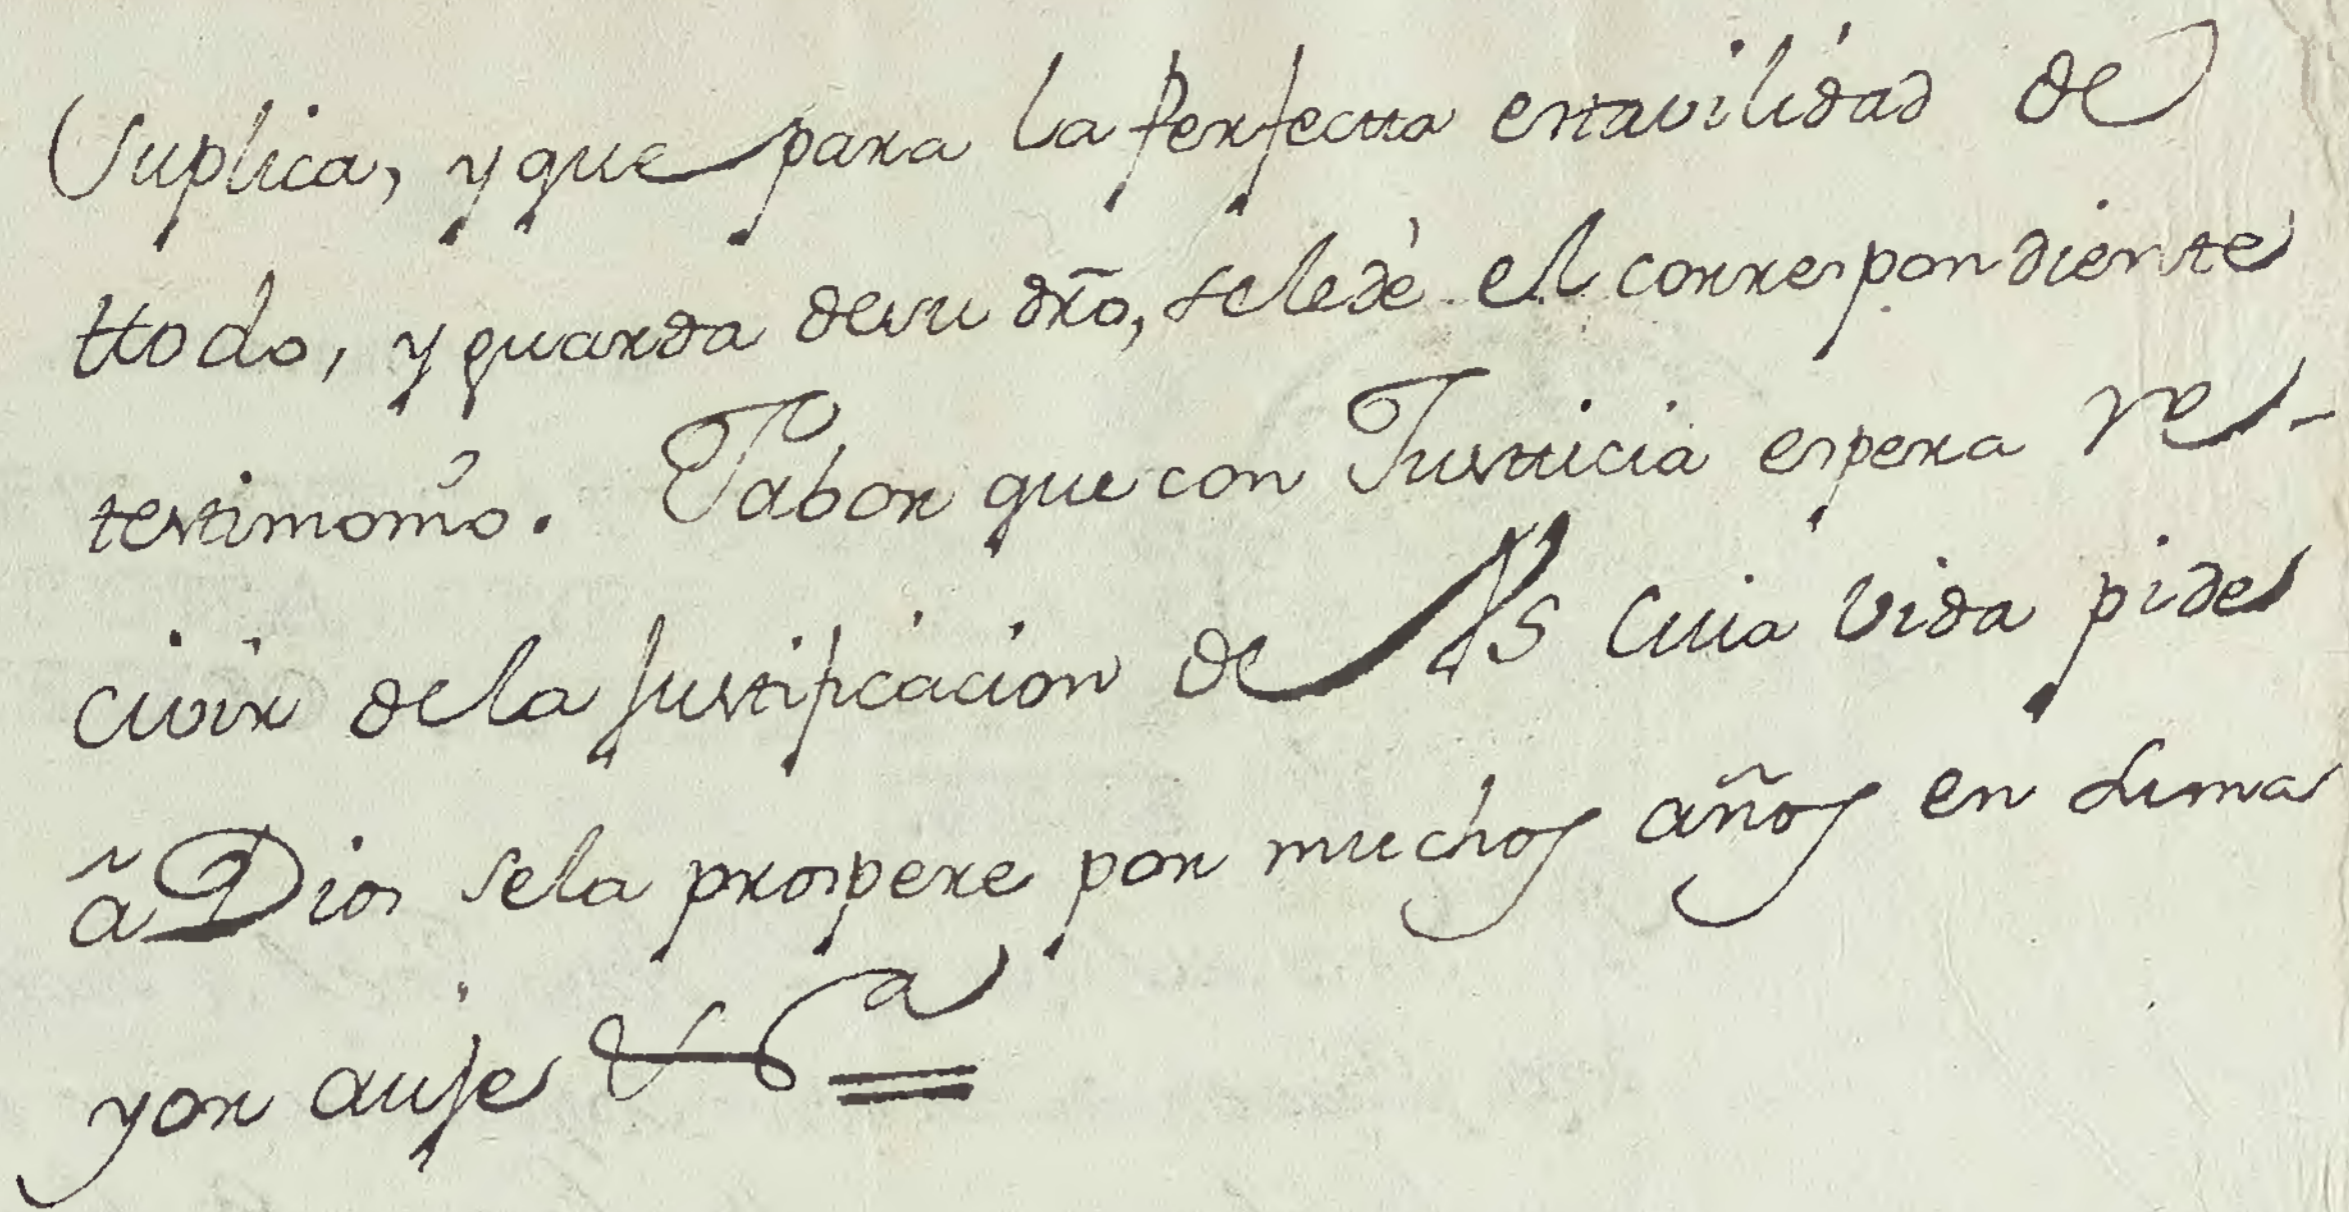 Suplica, y que para la Perfectta estavilidad de
ttodo, y guarda desu dr̃o, sele dè el correspondiente
testimonio. Fabor que con Justticia espera re-
civir dela Justificacion de VS Cuia vida pide
ã Dios sela prospere por muchos años en su ma
yor auje &ª